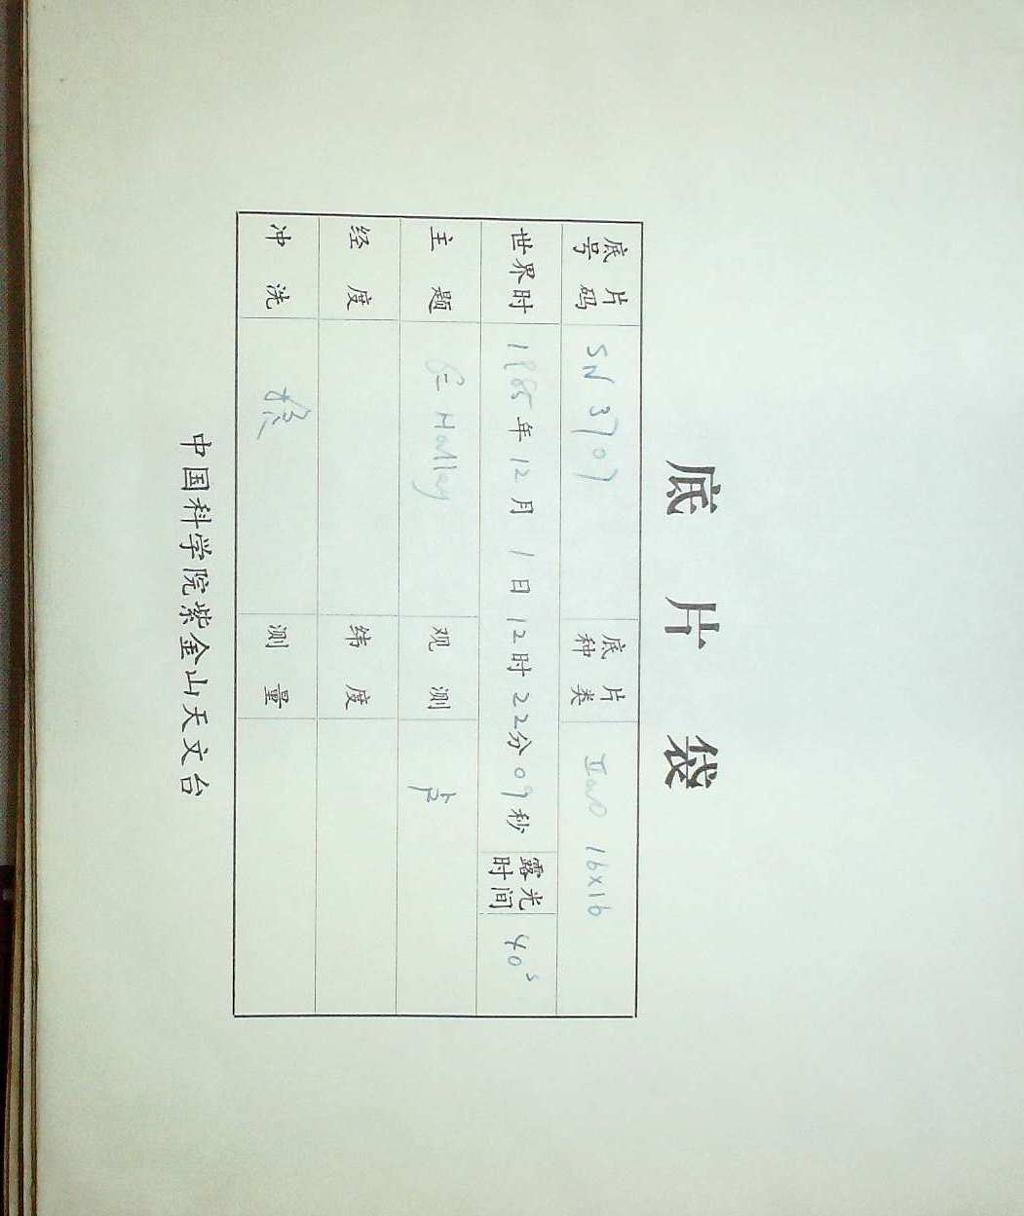 底片袋
底片号码 SN 3707 底片种类 IIaO 16x16
世界时 1985年12月1日12时22分09秒 露光时间 40s
主题 Halley 观测 卢
经度 纬度
冲洗 测量
中国科学院紫金山天文台